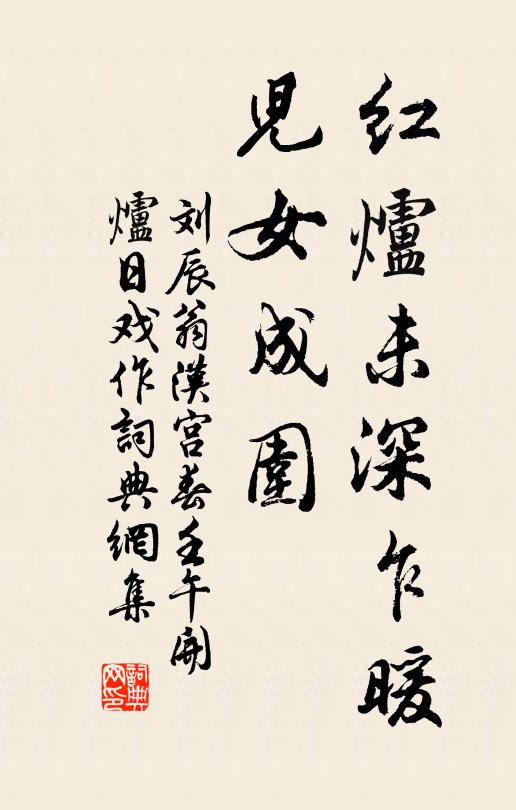 红爐未深乍暖
児女成圍
刘辰翁漢宮春壬午開
爐日戏作詞典網集
詞典
网印